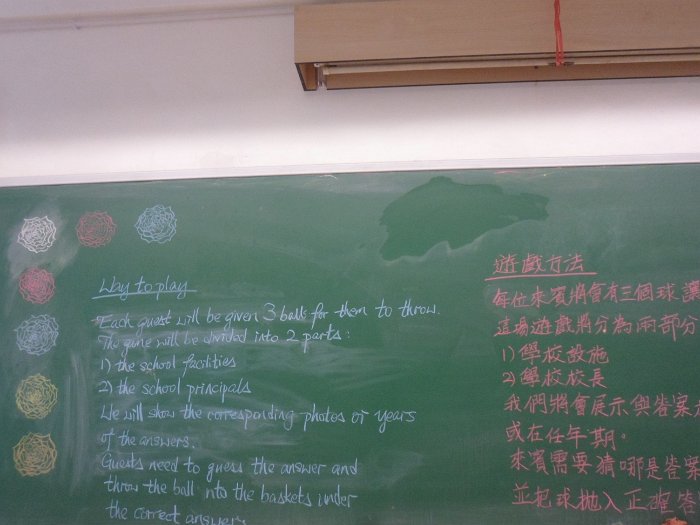 Way to play
Each guest will be given 3 balls for them to throw.
The game will be divided into 2 parts:
1) the school facilities
2) the school principals
We will show the corresponding photos or years
of the answers.
Guests need to guess the answer and
throw the ball into the baskets under
the correct answer
遊戲方法
每位來賓將會有三個球讓
這場遊戲將分為兩部分
1) 學校設施
2) 學校校長
我們將會展示與答案
或在任年期。
來賓需要猜哪是答案
並把球拋入正確答